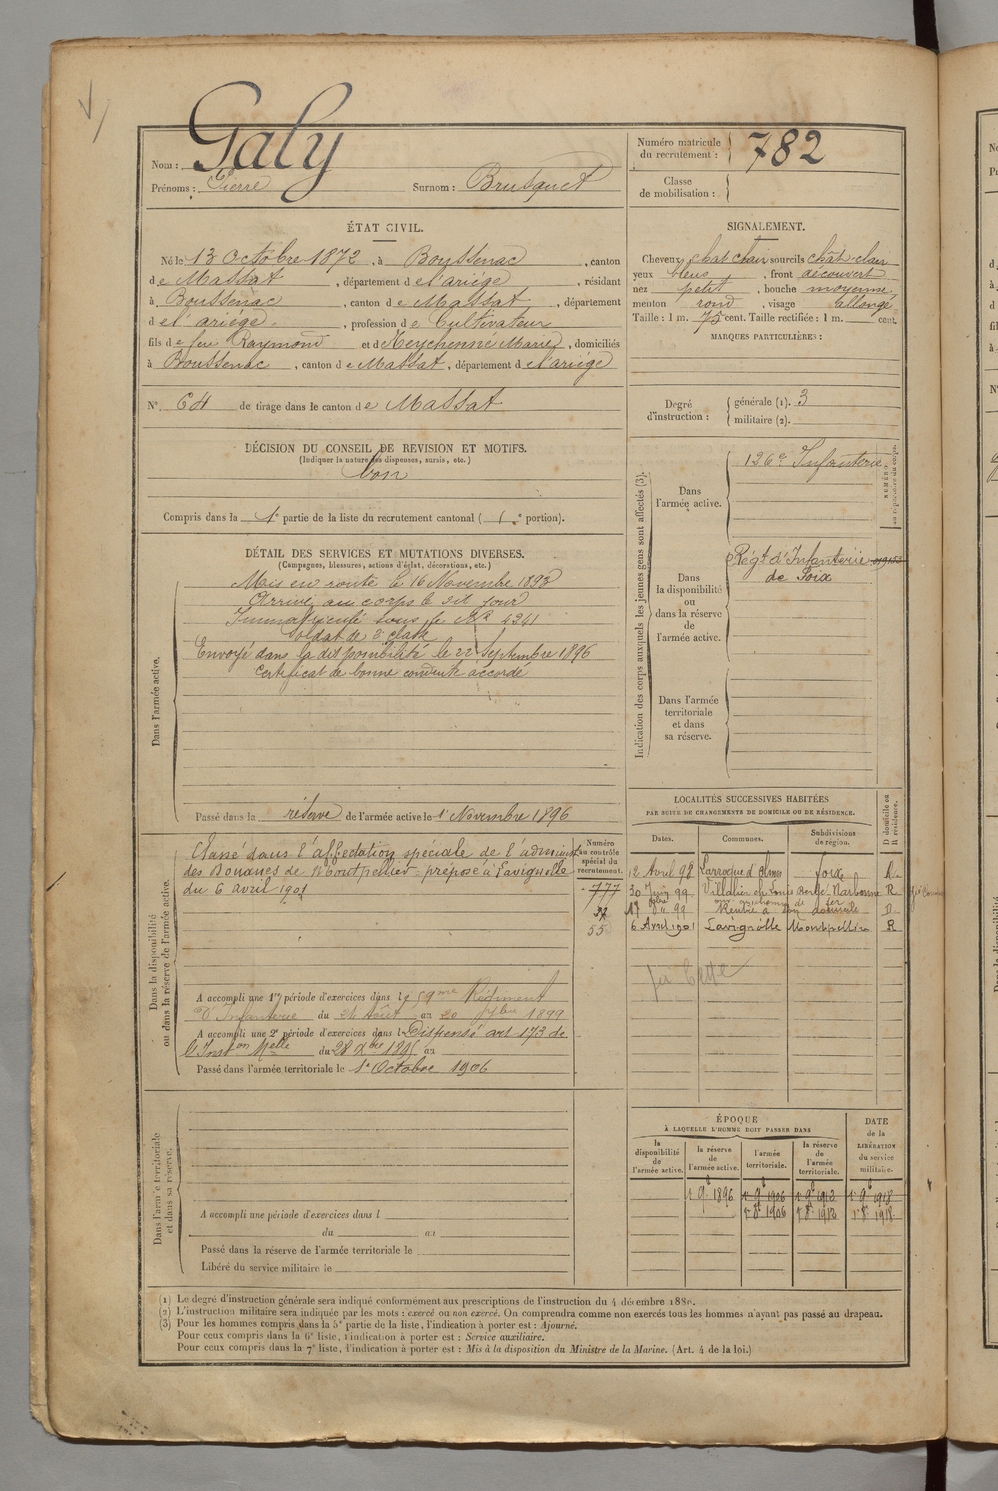 Galy
Nom :
Prénoms : Pierre Surnom : Brusquet
Numéro matricule
du recrutement : 782
Classe
de mobilisation :
ÉTAT CIVIL.
Né le 13 Octobre 1872, à Boussenac, canton
de Massat, département de l'ariège, résidant
à Boussenac, canton de Massat, département
de l'ariège, profession de Cultivateur
fils de feu Raymond et de Neychenné Marie, domiciliés
à Boussenac, canton de Massat, département de l'ariège
N° 64 de tirage dans le canton de Massat
DÉCISION DU CONSEIL DE REVISION ET MOTIFS.
(Indiquer la nature des dispenses, sursis, etc.)
bon
Compris dans la 1e partie de la liste du recrutement cantonal ( 1e portion).
SIGNALEMENT.
Cheveux chat clair sourcils chât-clair
yeux bleus, front découvert
nez petit, bouche moyenne
menton rond, visage allongé
Taille : 1 m. 75 cent. Taille rectifiée : 1 m. cent.
MARQUES PARTICULIÈRES :
Degré
d'instruction :
générale (1). 3
militaire (2).
Indication des corps auxquels les jeunes gens sont affectés (3).
Dans
l'armée active.
126e Infanterie
NUMÉRO
Dans
la disponibilité
ou
dans la réserve
de
l'armée active.
Régt d'Infanterie
de Foix
Dans l'armée
territoriale
et dans
sa réserve.
DÉTAIL DES SERVICES ET MUTATIONS DIVERSES.
(Campagnes, blessures, actions d'éclat, décorations, etc.)
Dans l'armée active.
Mis en route le 16 Novembre 1893
Arrivé au corps le dit jour
Immatriculé sous le No 4341
Soldat de 2e classe
Envoyé dans la disponibilité le 22 Septembre 1896
Certificat de bonne conduite accordé
Passé dans la réserve de l'armée active le 1e Novembre 1896
Dans la disponibilité
ou dans la réserve de l'armée active.
Classé dans l'affectation spéciale de l'administ
des Douanes de Montpellier préposé à Lavignolle
du 6 avril 1901
Numéro
au contrôle
spécial du
recrutement.
777
55
A accompli une 1re période d'exercices dans le 59me Régiment
d'Infanterie du 24 Août au 20 7bre 1899
A accompli une 2e période d'exercices dans l Dispensé art 173 de
l'Inston Melle du 28 Xbre 1895 au
Passé dans l'armée territoriale le 1e Octobre 1906
LOCALITÉS SUCCESSIVES HABITÉES
PAR SUITE DE CHANGEMENTS DE DOMICILE OU DE RÉSIDENCE.
Dates. Communes. Subdivisions
de région. D domicile ou
R résidence.
12 Avril 98 Larroque d'Olmes foix R.
30 Juin 99 Narbonne R
99 Rentré à son domicile D
6 Avril 1901 Lavignolle Montpellier R
Dans l'armée territoriale
et dans sa réserve.
A accompli une période d'exercices dans l
du au
Passé dans la réserve de l'armée territoriale le
Libéré du service militaire le
ÉPOQUE
À LAQUELLE L'HOMME DOIT PASSER DANS
la
disponibilité
de
l'armée active.
la réserve
de
l'armée active.
l'armée
territoriale.
la réserve
de
l'armée
territoriale.
DATE
de la
LIBÉRATION
du service
militaire.
1 9e 1896 1 9e 1906 1 9e 1912 1 9e 1918
1 8e 1906 1 8e 1912 1 8e 1918
(1) Le degré d'instruction générale sera indiqué conformément aux prescriptions de l'instruction du 4 décembre 1889.
(2) L'instruction militaire sera indiquée par les mots : exercé ou non exercé. On comprendra comme non exercés tous les hommes n'ayant pas passé au drapeau.
(3) Pour les hommes compris dans la 5e partie de la liste, l'indication à porter est : Ajourné.
Pour ceux compris dans la 6e liste, l'indication à porter est : Service auxiliaire.
Pour ceux compris dans la 7e liste, l'indication à porter est : Mis à la disposition du Ministre de la Marine. (Art. 4 de la loi.)